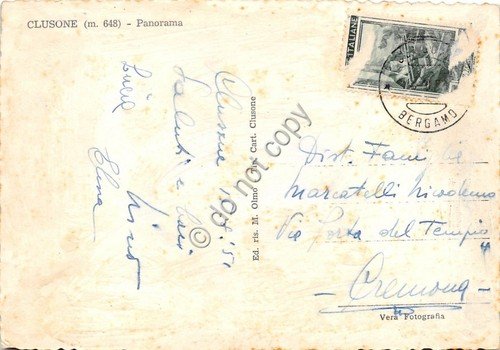 CLUSONE (m. 648) - Panorama
ITALIANE
BERGAMO
Clusone
Saluti e baci
Nino
Lucia
Elena
Ed. ris. M. Olmo Cart. Clusone
© do not copy
Dist. Famiglia
Marcatelli Nicodemo
Via Porta del Tempio
- Cremona -
Vera Fotografia